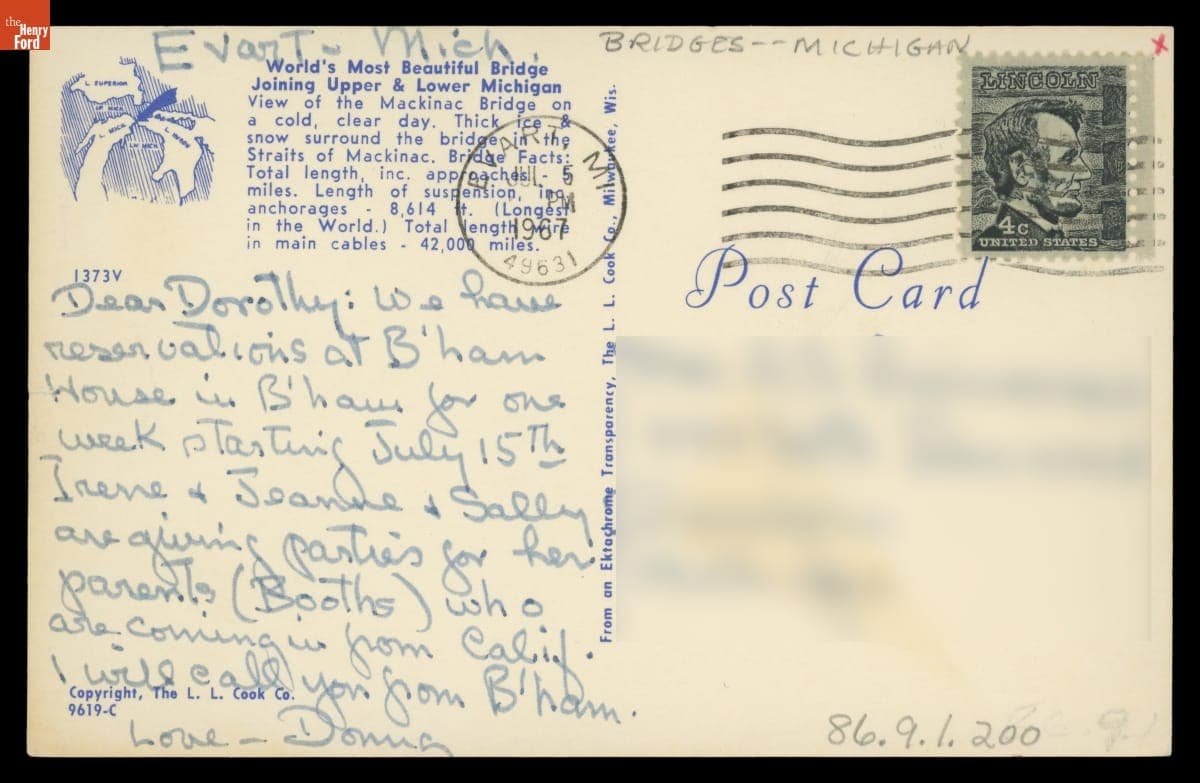 the
Henry
Ford
Evart - Mich.
BRIDGES -- MICHIGAN
x
World's Most Beautiful Bridge
Joining Upper & Lower Michigan
View of the Mackinac Bridge on
a cold, clear day. Thick ice &
snow surround the bridge in the
Straits of Mackinac. Bridge Facts:
Total length, inc. approaches - 5
miles. Length of suspension, inc.
anchorages - 8,614 ft. (Longest
in the World.) Total length wire
in main cables - 42,000 miles.
L. SUPERIOR
L. MICH
EVART, MI
JUL 5
PM
1967
49631
LINCOLN
4c
UNITED STATES
Post Card
1373V
Dear Dorothy: We have
reservations at B'ham
House in B'ham for one
week starting July 15th
Irene & Jeanne & Sally
are giving parties for her
parents (Booths) who
are coming in from Calif.
I will call you from B'ham.
Love - Donna
Copyright, The L. L. Cook Co.
9619-C
From an Ektachrome Transparency, The L. L. Cook Co., Milwaukee, Wis.
86.9.1.200